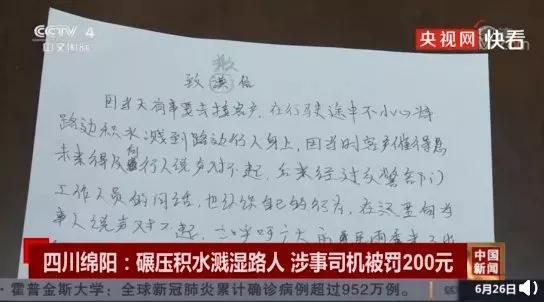 CCTV 4
中文国际
央视网 快看
致歉信
因当天有事要去接客户，在行驶途中不小心将
路边积水溅到路边行人身上，因当时客户催得急
未来得及向行人说声对不起，后来经过交警部门
工作人员的 自己的行为，在这里向当
事人说声对不起，
四川绵阳：碾压积水溅湿路人 涉事司机被罚200元
中国新闻
霍普金斯大学：全球新冠肺炎累计确诊病例超过952万例。
6月26日